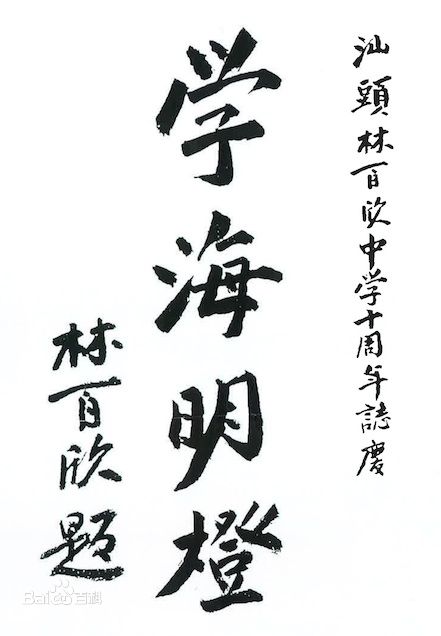 汕頭林百欣中学十周年誌慶
学海明橙
林百欣题
Bai百科